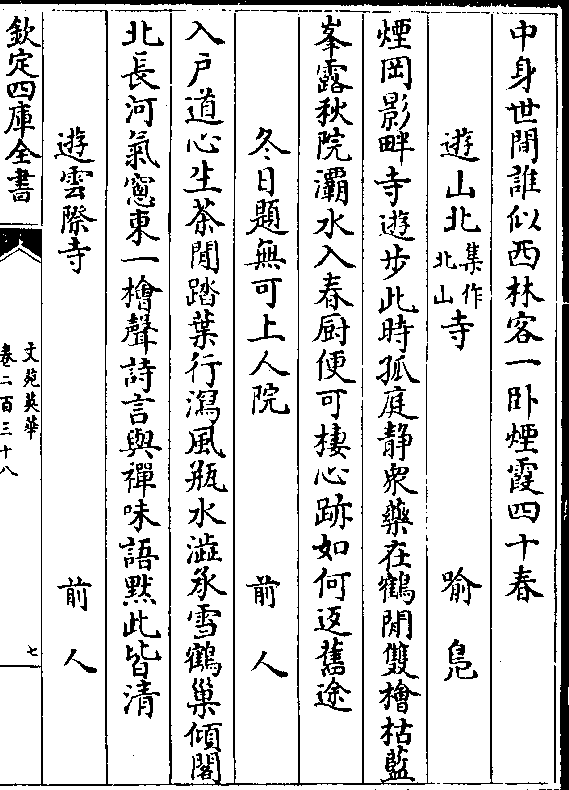 中身世間誰似西林客一卧煙霞四十春
遊山北集作北山寺　喻鳧
煙岡影畔寺遊步此時孤庭静衆藥在鶴閒雙檜枯藍
峯露秋院灞水入春厨便可棲心跡如何返舊途
冬日題無可上人院　前人
入戸道心生茶閒踏葉行瀉風瓶水澁承雪鶴巢傾閣
北長河氣窻東一檜聲詩言與禪味語黙此皆清
遊雲際寺　前人
欽定四庫全書
文苑英華
卷二百三十八
七